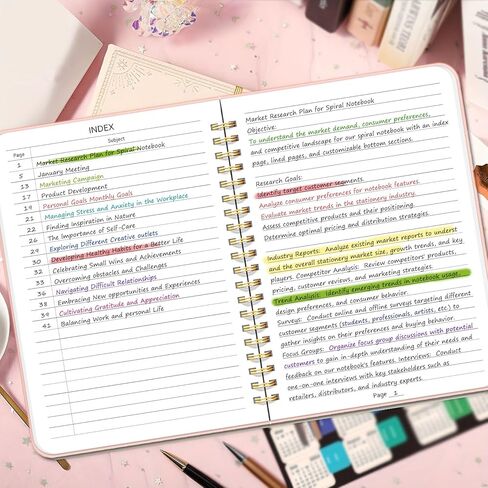 INDEX
Page Subject
1 Market Research Plan for Spiral Notebook
5 January Meeting
13 Marketing Campaign
17 Product Development
19 Personal Goals Monthly Goals
21 Managing Stress and Anxiety in the Workplace
22 Finding Inspiration in Nature
26 The Importance of Self-Care
29 Exploring Different Creative outlets
30 Developing Healthy Habits for a Better Life
32 Celebrating Small Wins and Achievements
33 Overcoming obstacles and Challenges
36 Navigating Difficult Relationships
38 Embracing New opportunities and Experiences
39 Cultivating Gratitude and Appreciation
41 Balancing Work and personal Life
Market Research Plan for Spiral Notebook
Objective:
To understand the market demand, consumer preferences,
and competitive landscape for our spiral notebook with an index
page, lined pages, and customizable bottom sections.
Research Goals:
Identify target customer segments.
Analyze consumer preferences for notebook features.
Evaluate market trends in the stationery industry.
Assess competitive products and their positioning.
Determine optimal pricing and distribution strategies.
Industry Reports: Analyze existing market reports to underst
and the overall stationery market size, growth trends, and key
players. Competitor Analysis: Review competitors' products,
pricing, customer reviews, and marketing strategies.
Trend Analysis: Identify emerging trends in notebook usage,
design preferences, and consumer behavior.
Surveys: Conduct online and offline surveys targeting different
customer segments (students, professionals, artists, etc.) to
gather insights on their preferences and buying behavior.
Focus Groups: Organize focus group discussions with potential
customers to gain in-depth understanding of their needs and
feedback on our notebook's features. Interviews: Conduct
one-on-one interviews with key stakeholders such as
retailers, distributors, and industry experts.
Page 1